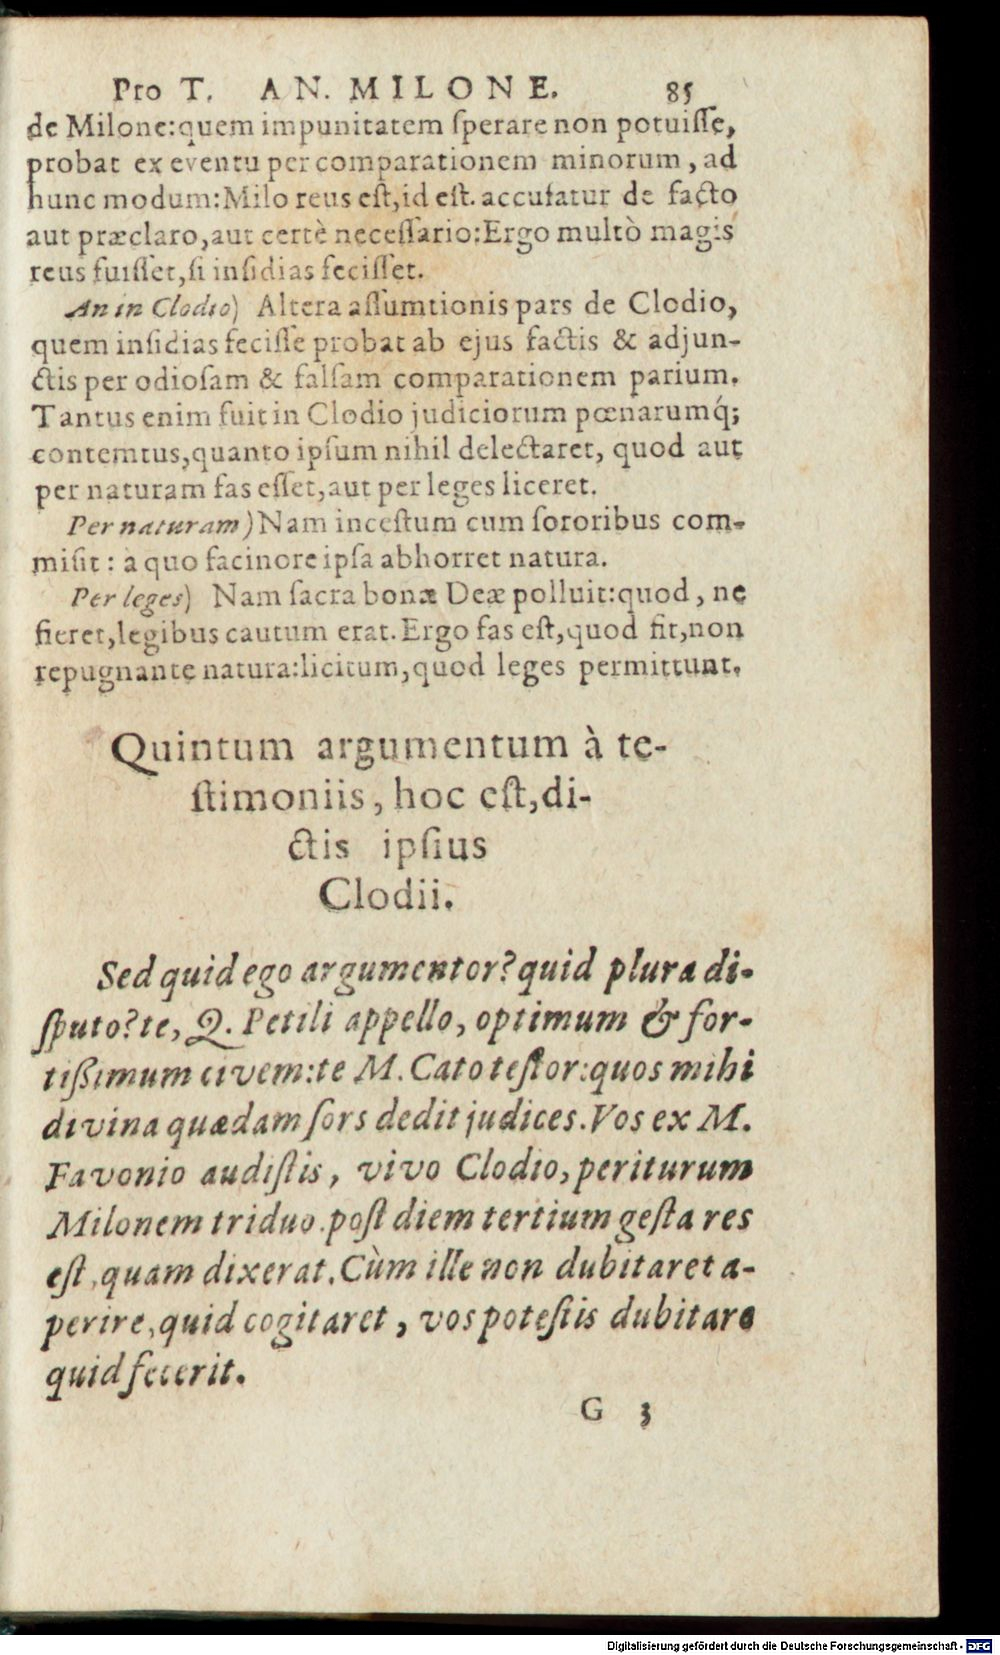 Pro T. AN. MILONE. 85
de Milone:quem impunitatem ſperare non potuiſſe,
probat ex eventu per comparationem minorum, ad
hunc modum:Milo reus eſt,id eſt. accuſatur de facto
aut præclaro,aut certè neceſſario:Ergo multò magis
reus fuiſſet,ſi inſidias feciſſet.
An in Clodio) Altera aſſumtionis pars de Clodio,
quem inſidias feciſſe probat ab ejus factis & adjun-
ctis per odioſam & falſam comparationem parium.
Tantus enim fuit in Clodio judiciorum pœnarumq́;
contemtus,quanto ipſum nihil delectaret, quod aut
per naturam fas eſſet,aut per leges liceret.
Per naturam) Nam inceſtum cum ſororibus com-
miſit: à quo facinore ipſa abhorret natura.
Per leges) Nam ſacra bonæ Deæ polluit:quod, ne
fieret,legibus cautum erat.Ergo fas eſt,quod fit,non
repugnante natura:licitum,quod leges permittunt.
Quintum argumentum à te-
ſtimoniis, hoc eſt,di-
ctis ipſius
Clodii.
Sed quid ego argumentor?quid plura di-
ſputo?te, Q. Petili appello, optimum & for-
tißimum civem:te M. Cato teſtor:quos mihi
divina quædam ſors dedit judices.Vos ex M.
Favonio audiſtis, vivo Clodio, periturum
Milonem triduo.poſt diem tertium geſta res
eſt,quam dixerat.Cùm ille non dubitaret a-
perire,quid cogitaret, vos poteſtis dubitare
quid fecerit.
G 3
Digitalisierung gefördert durch die Deutsche Forschungsgemeinschaft - DFG